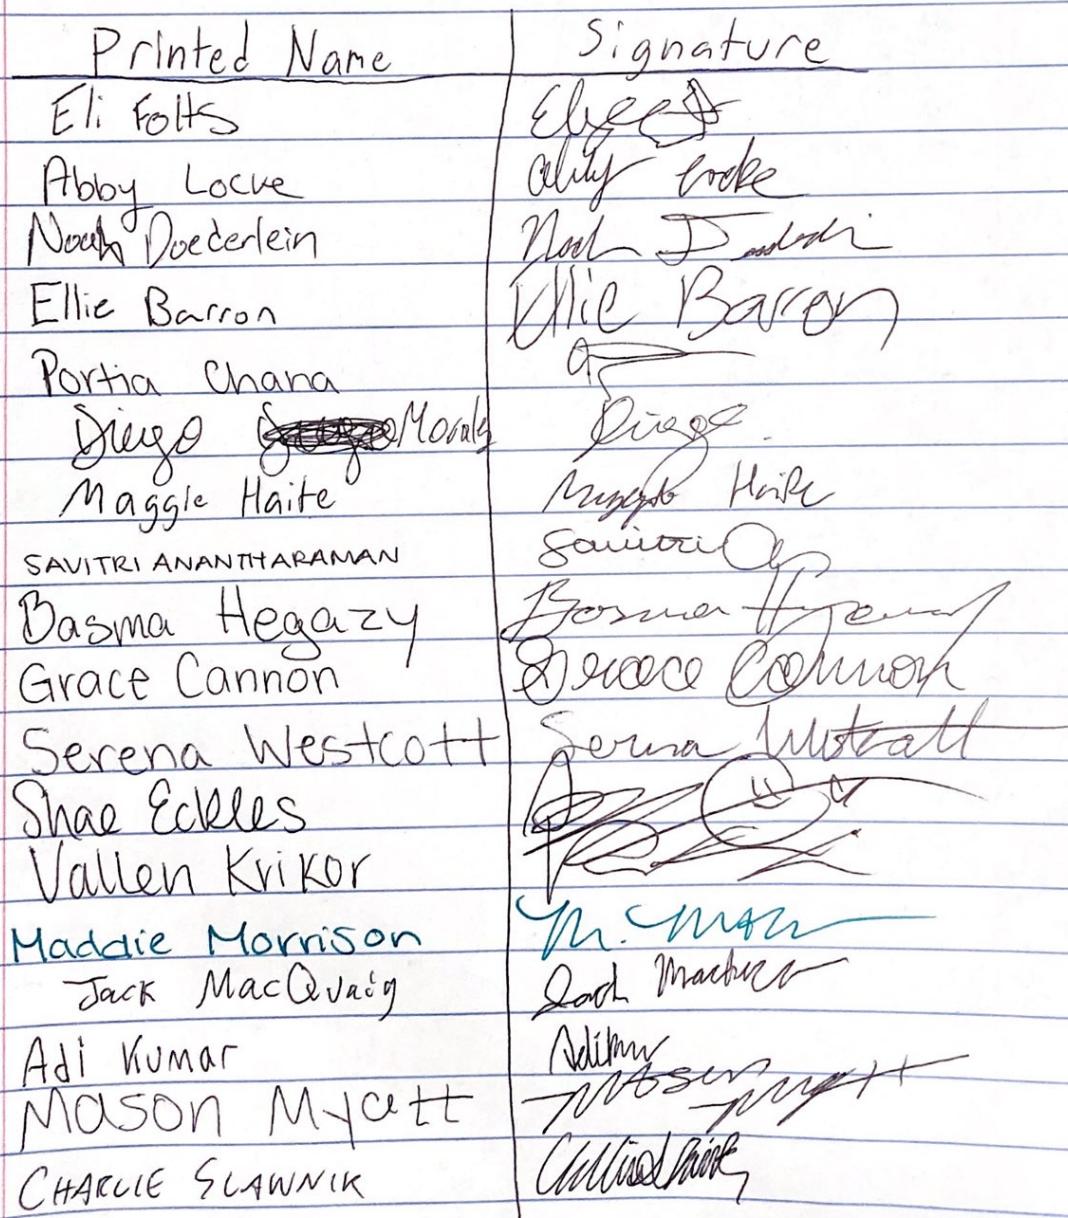 Printed Name Signature
Eli Folts
Abby Locke abby Locke
Noah Doederlein Noah
Ellie Barron Ellie Barron
Portia Chana
Diego Morales Diego
Maggie Haite Maggie Haite
SAVITRI ANANTHARAMAN Savitri
Basma Hegazy Basma Hegazy
Grace Cannon Grace Cannon
Serena Westcott Serena Westcott
Shae Eckles
Vallen Krikor
Maddie Morrison M.
Jack MacQuaig Jack
Adi Kumar
Mason Myatt Mason Myatt
CHARLIE SLAWNIK